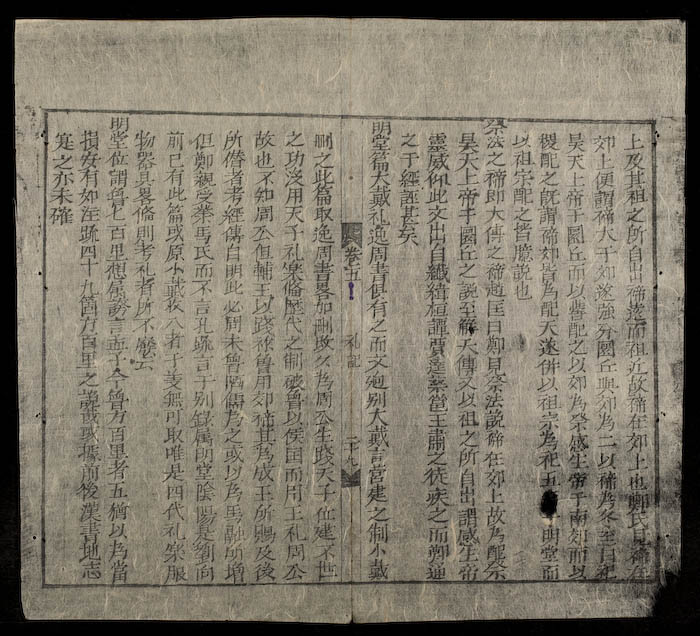 上及其祖之所自出禘遠而祖近故禘在郊上也鄭氏見禘在
郊上便謂禘大于郊遂強分圜丘與郊為二以禘為冬至日祀
昊天上帝于圜丘而以嚳配之以郊為祭感生帝于南郊而以
稷配之既謂禘郊皆為配天遂併以祖宗為祀五明堂而
以祖宗配之皆臆說也
祭法之禘即大傳之禘趙匡曰鄭見祭法說禘在郊上故為配祭
昊天上帝于圜丘之說至觧大傳又以祖之所自出謂感生帝
靈威仰此文出自讖緯桓譚賈逵蔡當王肅之徒疾之而鄭通
之于經誣甚矣
明堂篇大戴礼逸周書俱有之而文迥别大戴言營建之制小戴
卷五
礼記
刪之此篇取逸周書畧加刪改又為周公生踐天子位建不世
之功沒用天子礼樂俻歴代之制破魯以侯国而用王礼周公
故也不知周公但輔王以踐祚魯用郊禘其為成王所賜及後
所僣者考經傳自明此必周末魯陋儒為之或以為馬融所増
但鄭親受業馬氏而不言孔疏言于别録属明堂陰陽是劉向
前已有此篇或原小戴收入者于義無可取唯是四代礼樂服
物器具畧俻則考礼者所不廢云
明堂位謂魯七百里想属誇言孟子今魯方百里者五猶以為當
損安有如注疏四十九箇方百里之說或收據前後漢書地志
寔之亦未確